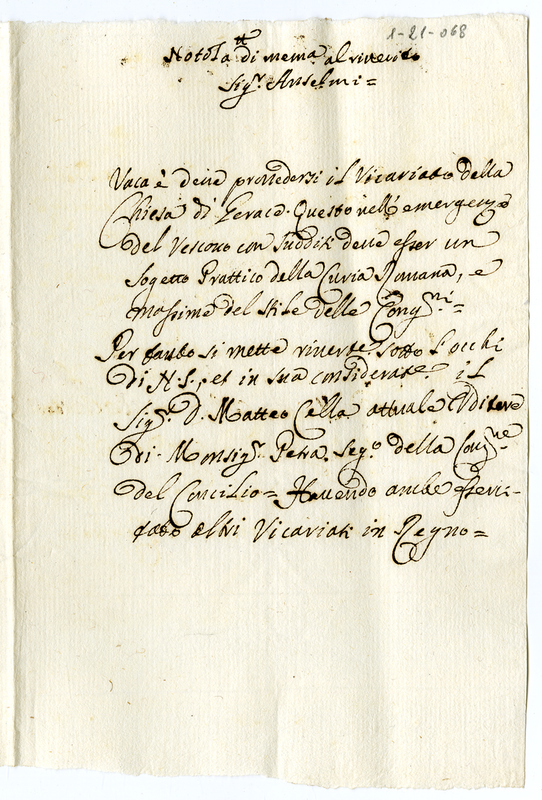 1-21-068
Notola di mema. al riverito
Sigr. Anselmi=
Vaca è deve provedersi il Vicariato della
Chiesa di Gerace. Questo nell'emergenze
del Vescovo con sudditi deve esser un
sogetto Prattico della Curia Romana, e
massime del stile delle Congni=
Per tanto si mette riverte. sotto l'occhi
di N.S., et in sua considerate. il
Sigr. D. Matteo Cella attuale Uditore
di Monsigr. Petra Sego. della Congne
del Concilio= Havendo anche eserci-
tato altri Vicariati in Regno=